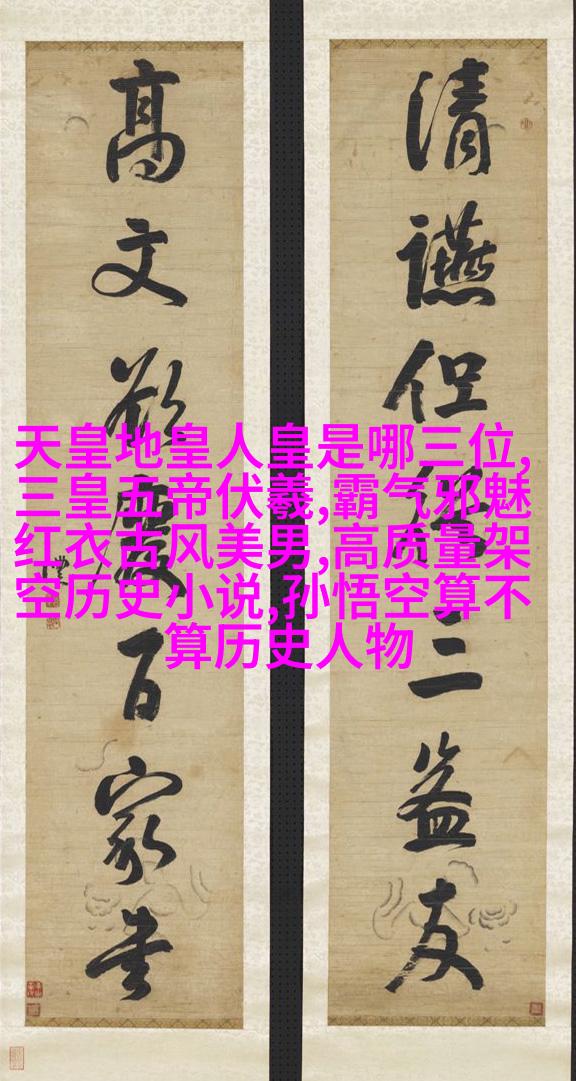 清讌但三益友
高文百家書
天皇地皇人皇是哪三位,
三皇五帝伏羲,霸气邪魅
红衣古风美男,高质量架
空历史小说,孙悟空算不
算历史人物